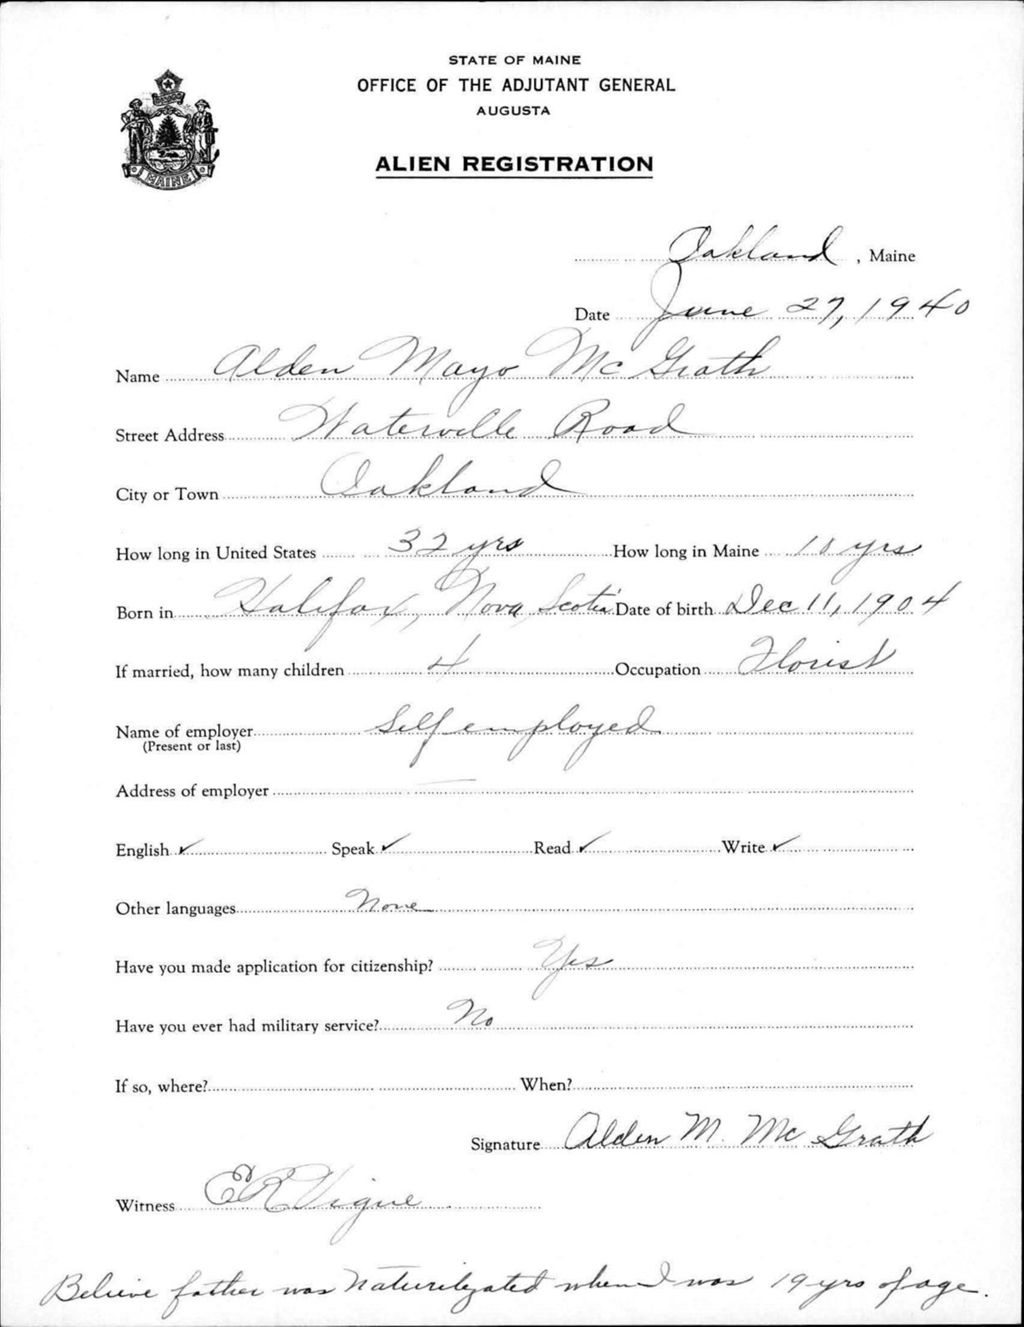 STATE OF MAINE
OFFICE OF THE ADJUTANT GENERAL
AUGUSTA
ALIEN REGISTRATION
MAINE
Oakland, Maine
Date June 27, 1940
Name Alden Mayo McGrath
Street Address Waterville Road
City or Town Oakland
How long in United States 32 yrs How long in Maine 10 yrs
Born in Halifax, Nova Scotia Date of birth Dec 11, 1904
If married, how many children 4 Occupation Florist
Name of employer Self employed
(Present or last)
Address of employer —
English ✓ Speak ✓ Read ✓ Write ✓
Other languages None
Have you made application for citizenship? Yes
Have you ever had military service? No
If so, where? When?
Signature Alden M. McGrath
Witness E R Vigue
Believe father was Naturilyzated when I was 19 yrs of age.